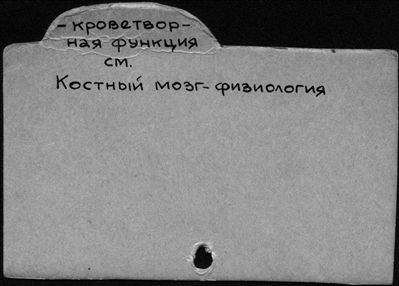 - кроветвор-
ная функция
см.
Костный мозг-физиология